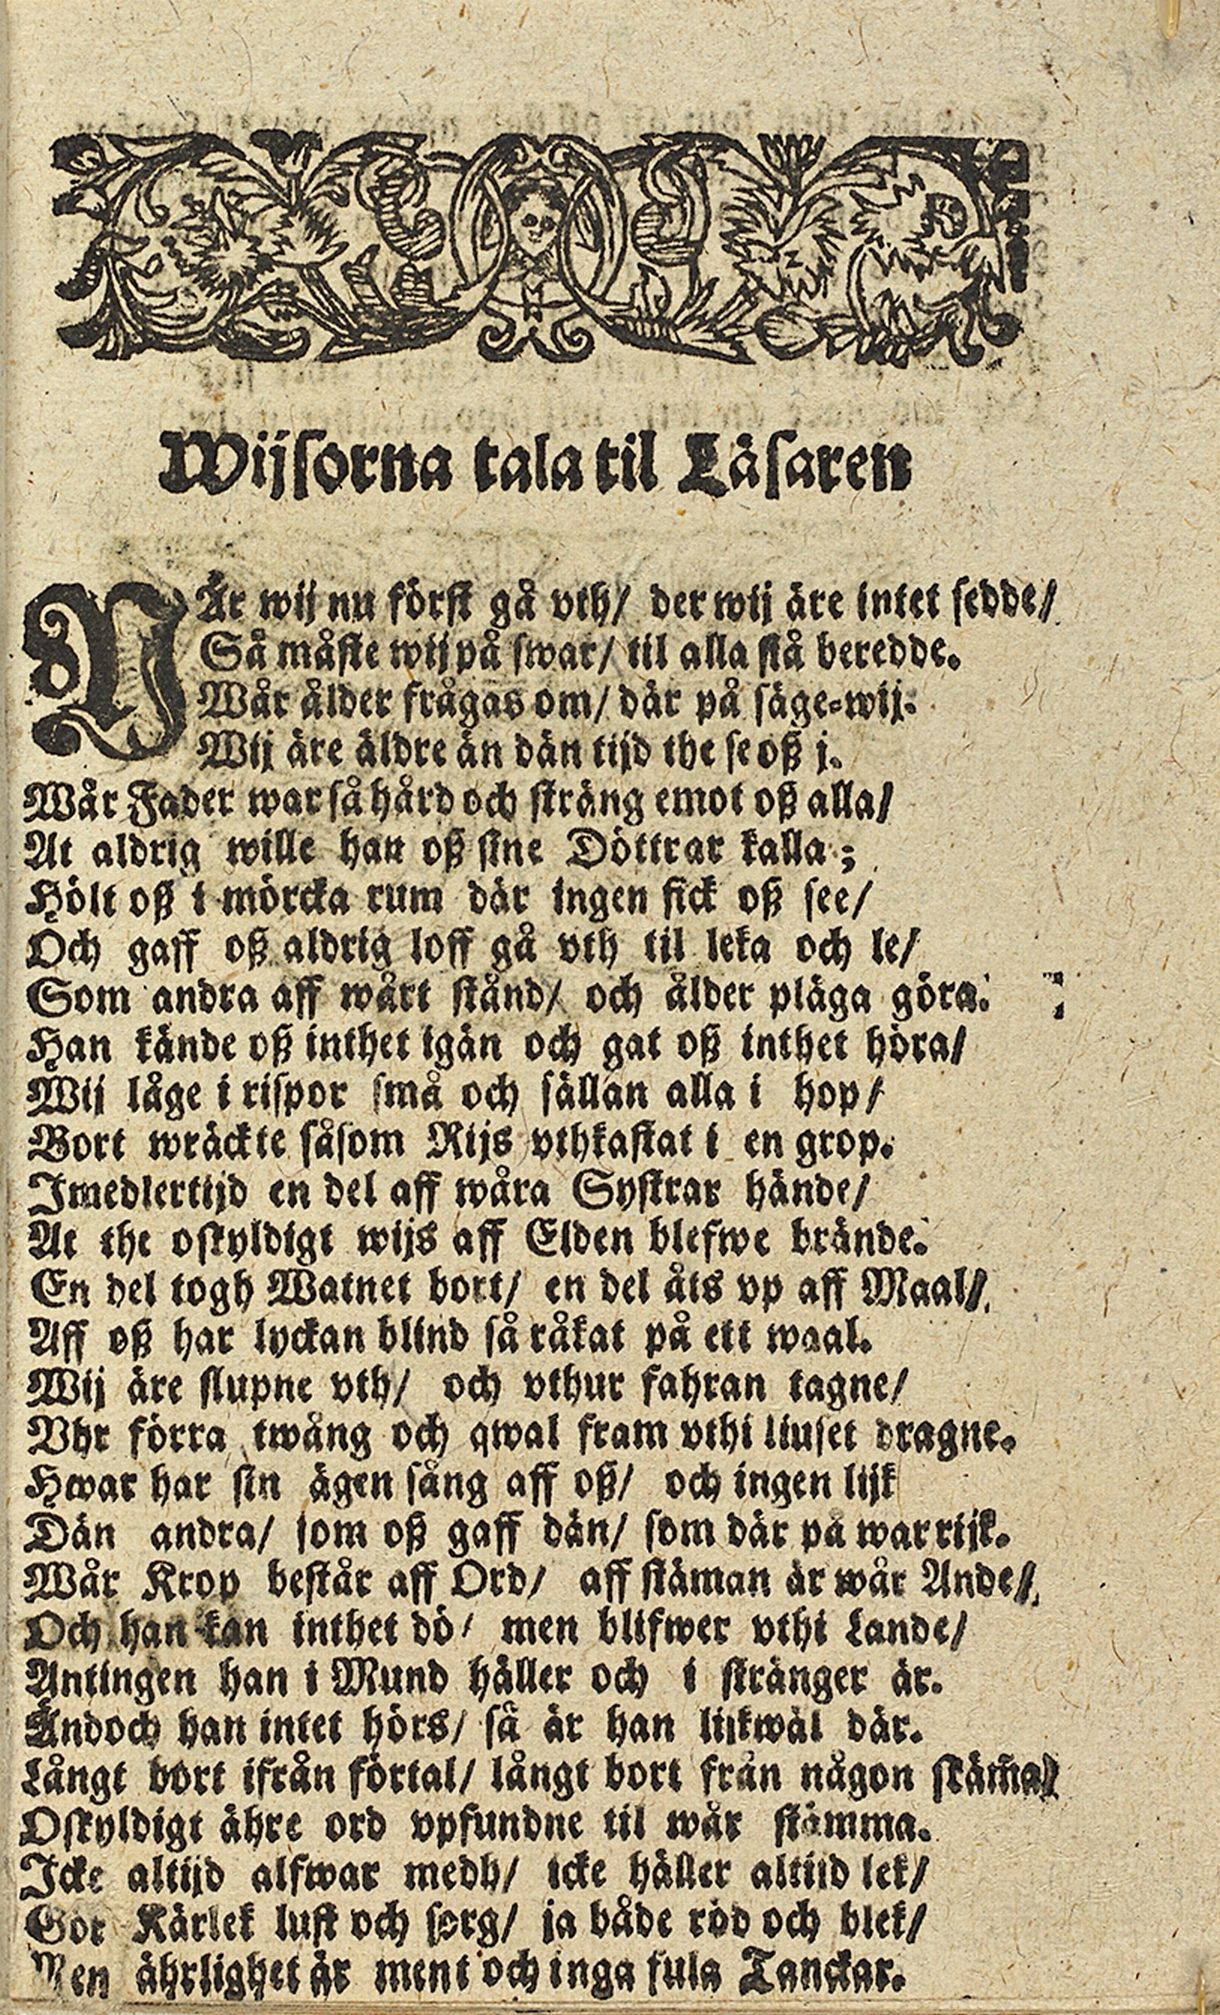 Wijsorna tala til Läsaren
NÄr wij nu först gå vth/ der wij äre intet sedde/
Så måste wij på swar/ til alla stå beredde.
Wår ålder frågas om/ där på säge=wij:
Wij äre äldre än dän tijd the se oß j.
Wår Fader war så hård och sträng emot oß alla/
At aldrig wille han oß sine Döttrar kalla;
Hölt oß i mörcka rum där ingen fick oß see/
Och gaff oß aldrig loff gå vth til leka och le/
Som andra aff wårt stånd/ och ålder pläga göra.
Han kände oß inthet igän och gat oß inthet höra/
Wij låge i rispor små och sällan alla i hop/
Bort wräckte såsom Rijs vthkastat i en grop.
Imedlertijd en del aff wåra Systrar hände/
At the oskyldigt wijs aff Elden blefwe brände.
En del togh Watnet bort/ en del åts vp aff Maal/
Aff oß har lyckan blind så råkat på ett waal.
Wij äre slupne vth/ och vthur fahran tagne/
Vhr förra twång och qwal fram vthi liuset dragne.
Hwar har sin ägen sång aff oß/ och ingen lijk
Dän andra/ som oß gaff dän/ som där på war rijk.
Wår Krop består aff Ord/ aff stäman är wår Ande/
Och han kan inthet dö/ men blifwer vthi Lande/
Äntingen han i Mund häller och i stränger är.
Ändoch han intet hörs/ så är han lijkwäl där.
Långt bort ifrån förtal/ långt bort från någon skäm̃a/
Oskyldigt ähre ord vpfundne til wår stämma.
Icke altijd alfwar medh/ icke häller altijd lek/
Gör Kärlek lust och sorg/ ja både röd och blek/
Men ährlighet är ment och inga fula Tanckar.